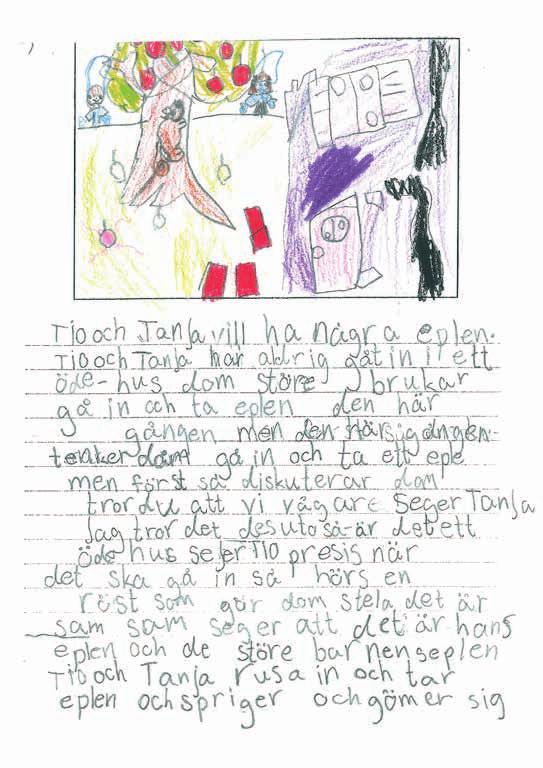 Tio och Tanja vill ha några eplen.
Tio och Tanja har aldrig gåt in i ett
öde-hus dom störe brukar
gå in och ta eplen den här
gången men den här gången
tenker dom gå in och ta ett epe
men först så diskuterar dom
tror du att vi vågar seger Tanja
jag tror det desutoså är det ett
öde hus sejer Tio presis när
det ska gå in så hörs en
röst som gör dom stela det är
sam sam seger att det är hans
eplen och de störe barnens eplen
Tio och Tanja rusa in och tar
eplen och spriger och gömer sig